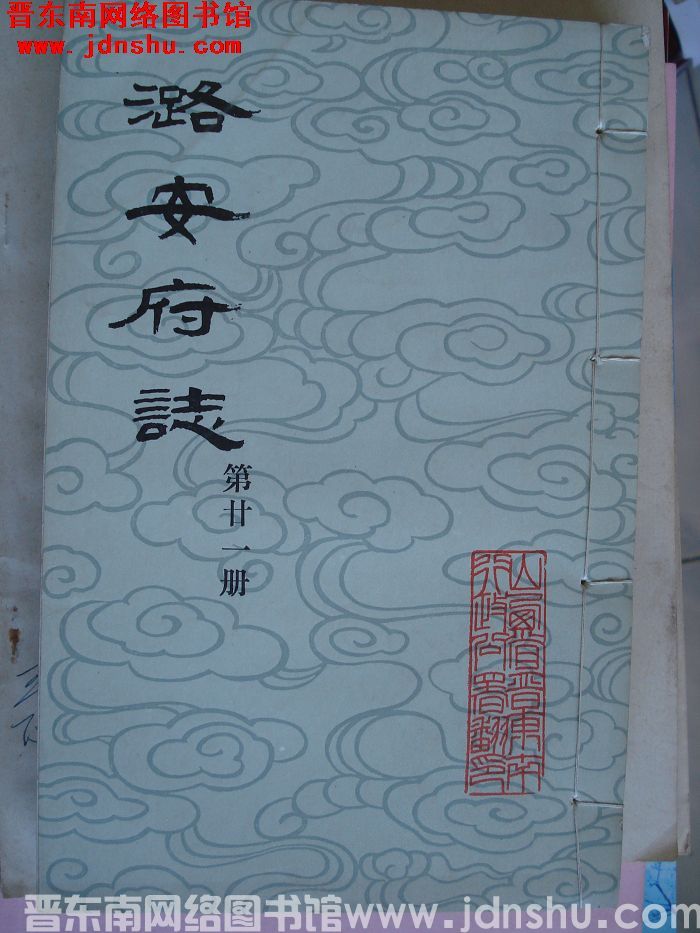 晋东南网络图书馆
www.jdnshu.com
潞安府誌
第廿一册
山西省晋东南
行政公署翻印
晋东南网络图书馆 www.jdnshu.com